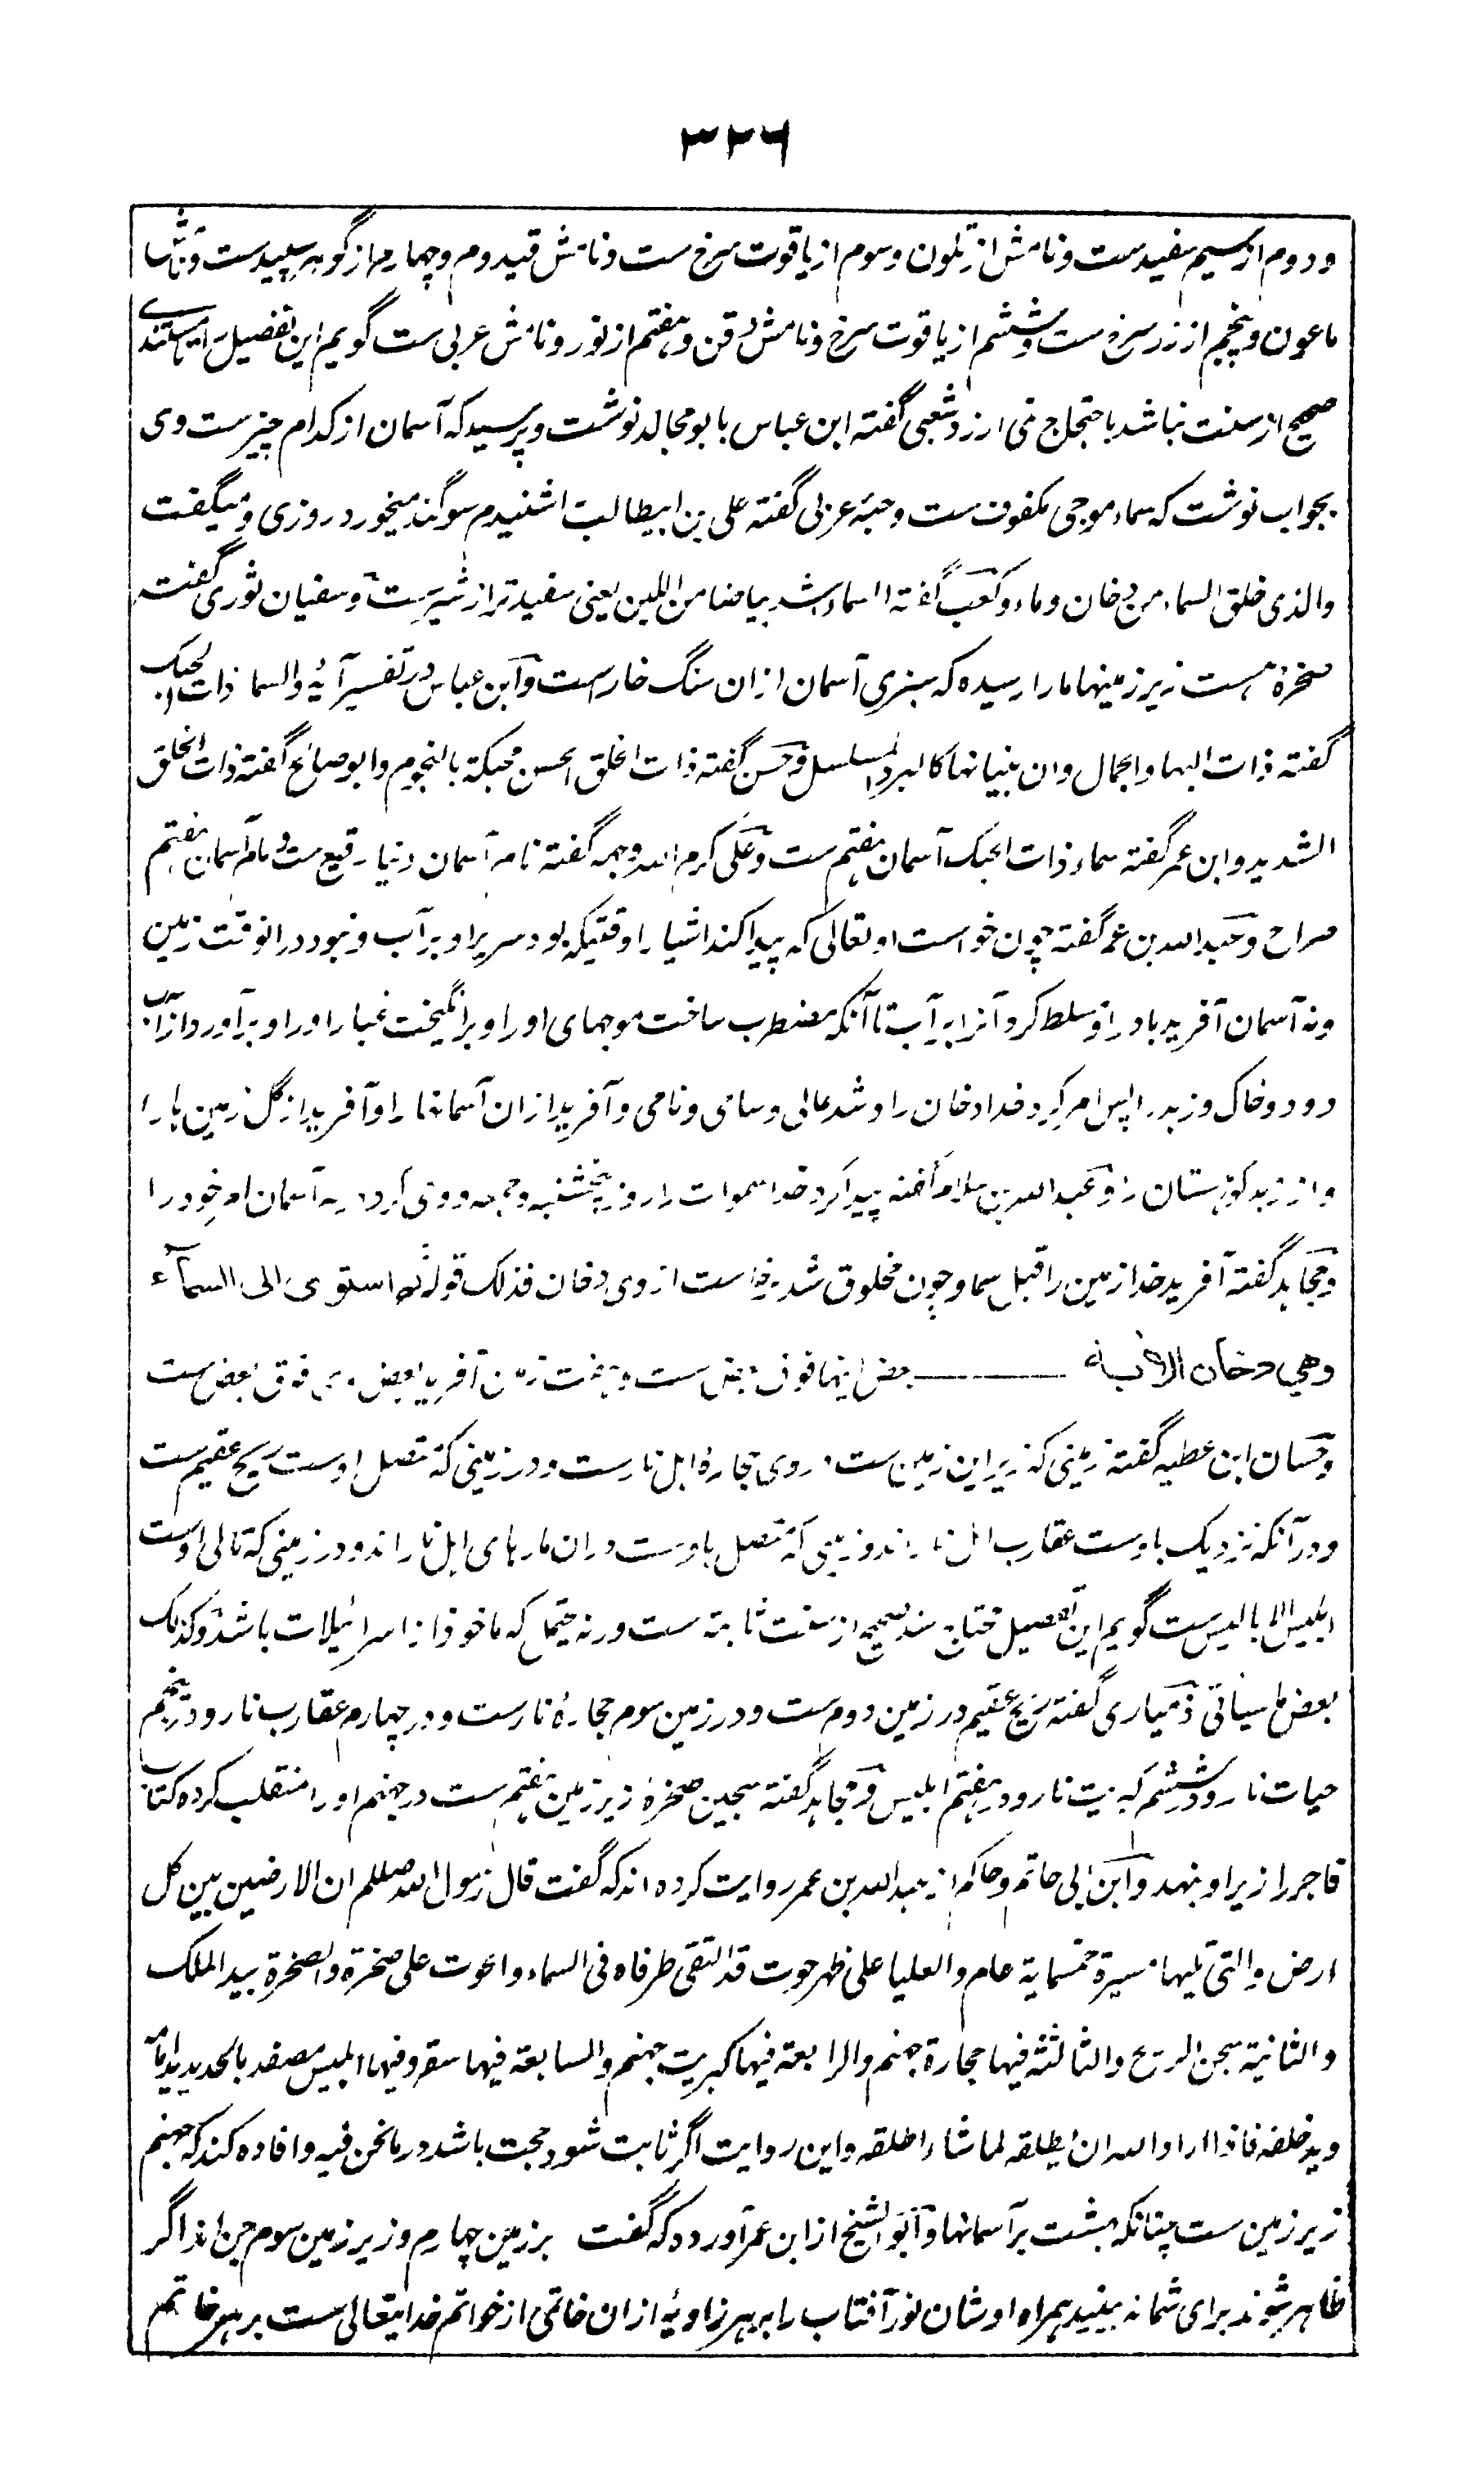 ۳۲۶
ودوم از سیم سفیدست ونامش ازیلون وسوم از یاقوت سرخ ست ونامش قیدوم وچهارم از گوهر سپیدست ونامش
ماعون وپنجم از زر سرخ ست وششم از یاقوت سرخ ونامش دقن وهفتم از نور ونامش عربی ست گویم این تفصیل را تا مستندی
صحیح از سنت نباشد باحتجاج نمی ارزد وشعبی گفته ابن عباس بابو مجالد نوشت وپرسید که آسمان از کدام چیزست وی
بجواب نوشت که سماء موجی مکفوف ست وحبه عرنی گفته علی بن ابیطالب را شنیدم سوگند میخورد روزی ومیگفت
والذی خلق السماء من دخان وماء وکعب گفته السماء اشد بیاضا من اللبن یعنی سفیدتر از شیرست وسفیان ثوری گفته
صخره هست زیر زمینها ما را رسیده که سبزی آسمان ازان سنگ خارست وابن عباس در تفسیر آیۀ والسما ذات الحبک
گفته ذات البها والجمال وان بنیانها کالبرد المسلسل وحسن گفته ذات الخلق الحسن محبکة بالنجوم وابو صالح گفته ذات الخلق
الشدید وابن عمر گفته سماء ذات الحبک آسمان هفتم ست وعلی کرم الله وجهه گفته نام آسمان دنیا رقیع ست ونام آسمان هفتم
صراح وعبدالله بن عمر گفته چون خواست او تعالی که پیدا کند اشیا را وقتیکه بود سریر او بر آب ونبود درانوقت زمین
ونه آسمان آفرید باد را ومسلط کرد آنرا بر آب تا آنکه مضطرب ساخت موجهای او را وبرانگیخت غبار او را وبرآورد از آب
دود وخاک وزبد را پس امر کرد خدا دخان را وشد عالی وسامی ونامی وآفرید ازان آسمانها را وآفرید از گل زمین ها را
واز زبد کوهستان را وعبدالله بن سلام گفته پیدا کرد خدا سموات را روز پنجشنبه وجمعه ووحی کرد در هر آسمان امر خود را
ومجاهد گفته آفرید خدا زمین را قبل سما وچون مخلوق شد برخاست از وی دخان فذلک قوله ثم استوی الی السمآء
وهی دخان الآیة ــــــ بعض اینها فوق بعض ست وهفت زمین آفرید بعض وی فوق بعض ست
وحسان ابن عطیه گفته زمینی که زیر این زمین ست در وی حجارۀ اهل نارست ودر زمینی که متصل اوست ریح عقیم ست
ودر آنکه نزدیک باوست عقارب اهل نار اند وزمینی که متصل باوست دران مارهای اهل نار اند ودر زمینی که تالی اوست
ابلیس الابالیس ست گویم این تفصیل محتاج سند صحیح از سنت ثابته ست ورنه محتمل که ماخوذ از اسرائیلات باشد وکذلک
بعض ما سیاتی ذمیاری گفته ریح عقیم در زمین دوم ست ودر زمین سوم حجارۀ نارست ودر چهارم عقارب نار ودر پنجم
حیات نار ودر ششم کبریت نار ودر هفتم ابلیس ومجاهد گفته سجین صخرۀ زیر زمین هفتم ست در جهنم او را منقلب کرده کتاب
فاجر را زیر او بنهند وابن ابی حاتم وحاکم از عبدالله بن عمر روایت کرده اند که گفت قال رسول الله صللم ان الارضین بین کل
ارض والتی تلیها مسیرة خمسمایة عام والعلیا علی ظهر حوت قد التقی طرفاه فی السماء والحوت علی صخرة والصخرة بید الملک
والثانیة سجن الریح والثالثة فیها حجارة جهنم والرابعة فیها کبریت جهنم والسابعة فیها سقر وفیها ابلیس مصفد بالحدید ید امامه
وید خلفه فاذا اراد الله ان یطلقه لما شاء اطلقه واین روایت اگر ثابت شود حجت باشد در ما نحن فیه وافاده کند که جهنم
زیر زمین ست چنانکه بهشت بر آسمانها وابوالشیخ از ابن عمر آورده که گفت برزمین چهارم وزیر زمین سوم جن اند اگر
ظاهر شوند برای شما نه بینید همراه اوشان نور آفتاب را بر هر زاویۀ ازان خاتمی از خواتم خدایتعالی ست بر هر خاتم